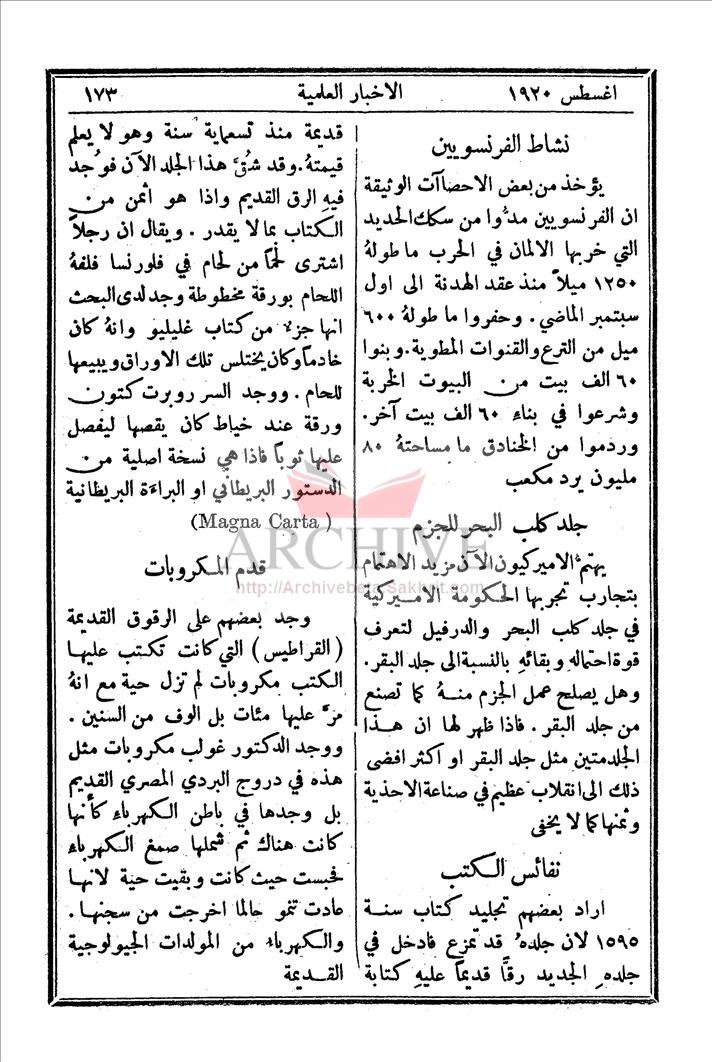 اغسطس ١٩٢٠
الاخبار العلمية
١٧٣
نشاط الفرنسويين
يؤخذ من بعض الاحصاآت الوثيقة
ان الفرنسويين مدُّوا من سكك الحديد
التي خربها الالمان في الحرب ما طولهُ
١٢٥٠ ميلاً منذ عقد الهدنة الى اول
سبتمبر الماضي. وحفروا ما طولهُ ٦٠٠
ميل من الترع والقنوات المطوية. وبنوا
٦٠ الف بيت من البيوت الخربة
وشرعوا في بناء ٦٠ الف بيت آخر.
وردموا من الخنادق ما مساحتهُ ٨٠
مليون يرد مكعب
جلد كلب البحر للجزم
يهتمُّ الاميركيون الآن مزيد الاهتمام
بتجارب تجربها الحكومة الاميركية
في جلد كلب البحر والدرفيل لتعرف
قوة احتماله وبقائهِ بالنسبة الى جلد البقر.
وهل يصلح عمل الجزم منهُ كما تصنع
من جلد البقر. فاذا ظهر لها ان هذا
الجلد متين مثل جلد البقر او اكثر افضى
ذلك الى انقلاب عظيم في صناعة الاحذية
وثمنها كما لا يخفى
نفائس الكتب
اراد بعضهم تجليد كتاب سنة
١٥٩٥ لان جلدهُ قد تمزع فادخل في
جلدهِ الجديد رقًّا قديماً عليهِ كتابة
قديمة منذ تسعماية سنة وهو لا يعلم
قيمتهُ. وقد شُقَّ هذا الجلد الآن فوُجد
فيهِ الرق القديم واذا هو اثمن من
الكتاب بما لا يقدر. ويقال ان رجلاً
اشترى لحماً من لحام في فلورنسا فلفهُ
اللحام بورقة مخطوطة وجد لدى البحث
انها جزء من كتاب غليليو وانهُ كان
خادماً وكان يختلس تلك الاوراق ويبيعها
للحام. ووجد السر روبرت كتون
ورقة عند خياط كان يقصها ليفصل
عليها ثوباً فاذا هي نسخة اصلية من
الدستور البريطاني او البراءة البريطانية
(Magna Carta)
قدم المكروبات
وجد بعضهم على الرقوق القديمة
(القراطيس) التي كانت تكتب عليها
الكتب مكروبات لم تزل حية مع انهُ
مرَّ عليها مئات بل الوف من السنين.
ووجد الدكتور غولب مكروبات مثل
هذه في دروج البردي المصري القديم
بل وجدها في باطن الكهرباء كأنها
كانت هناك ثم شملها صمغ الكهرباء
فحبست حيث كانت وبقيت حية لانها
عادت تنمو حالما اخرجت من سجنها.
والكهرباء من المولدات الجيولوجية
القديمة
ARCHIVE
http://Archivebeta.Sakhrit.com